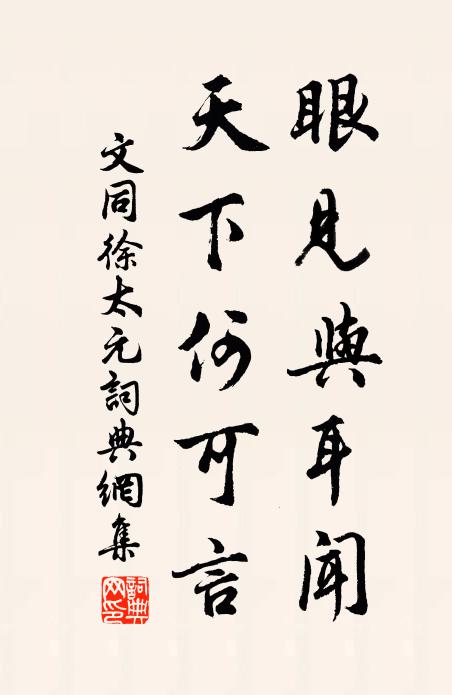 眼見與耳聞
天下何可言
文同徐太元詞典網集
詞典网印